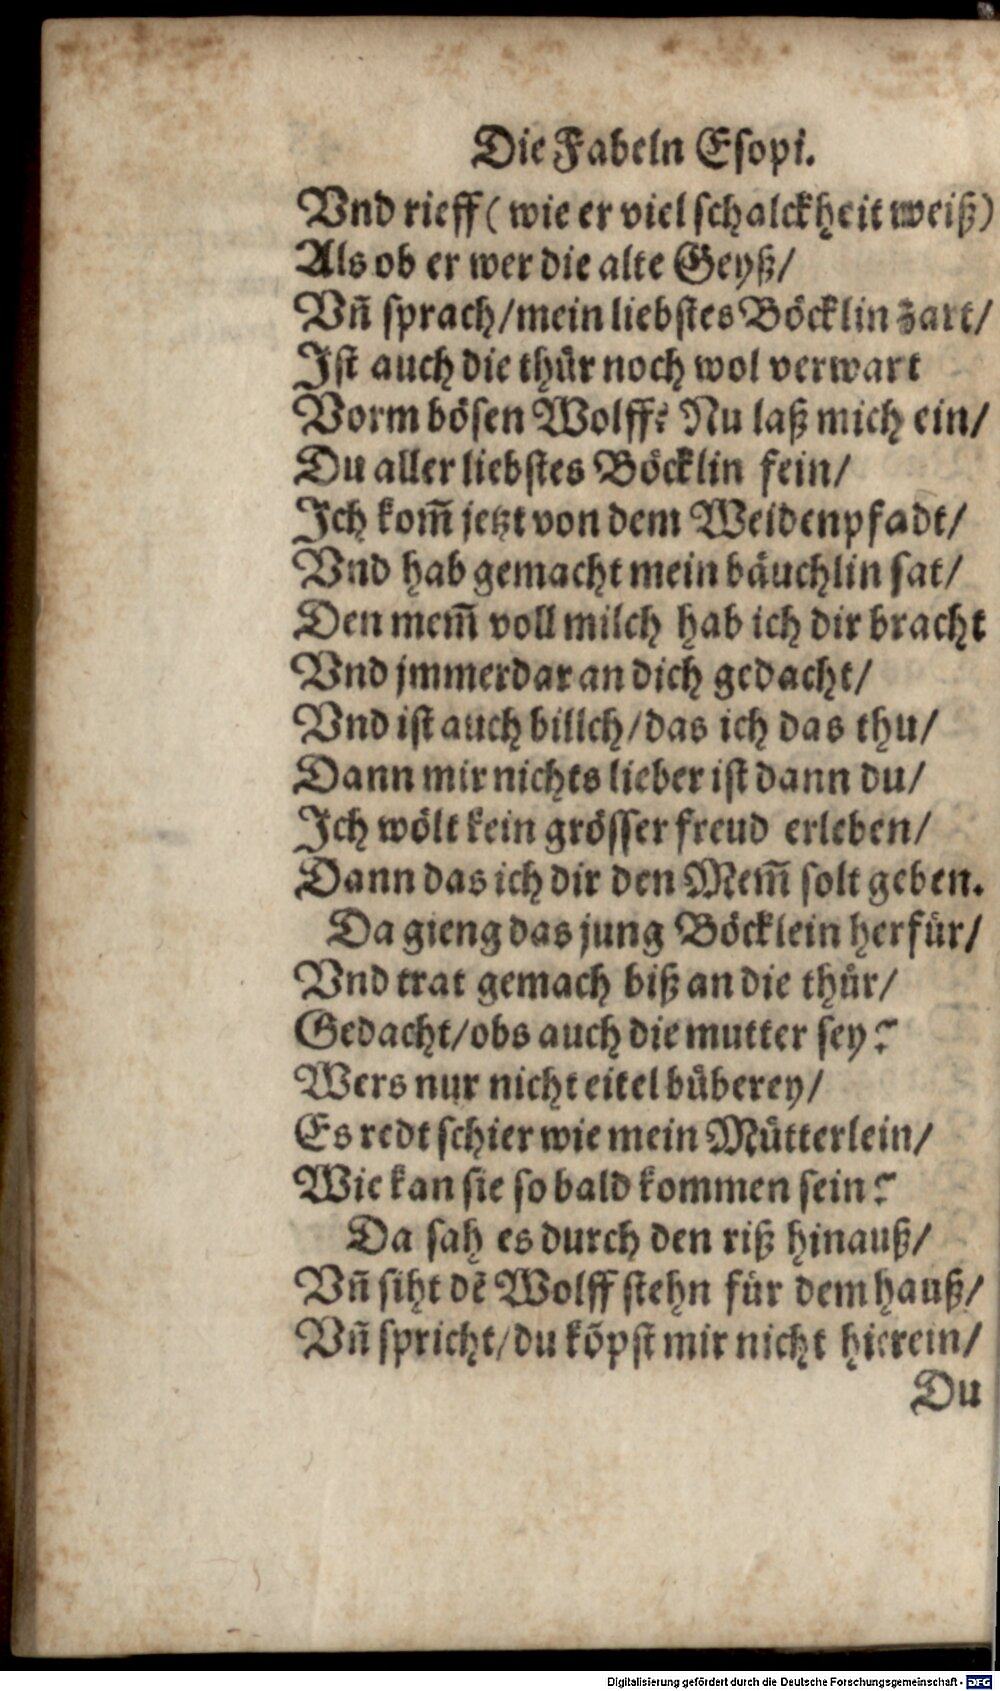 Die Fabeln Esopi.
Vnd rieff ( wie er viel schalckheit weiß)
Als ob er wer die alte Geyß/
Vñ sprach/mein liebstes Böcklin zart/
Ist auch die thür noch wol verwart
Vorm bösen Wolff? Nu laß mich ein/
Du aller liebstes Böcklin fein/
Ich kom̃ jetzt von dem Weidenpfadt/
Vnd hab gemacht mein bäuchlin sat/
Den mem̃ voll milch hab ich dir bracht
Vnd jmmerdar an dich gedacht/
Vnd ist auch billch/das ich das thu/
Dann mir nichts lieber ist dann du/
Ich wölt kein grösser freud erleben/
Dann das ich dir den Mem̃ solt geben.
Da gieng das jung Böcklein herfür/
Vnd trat gemach biß an die thür/
Gedacht/obs auch die mutter sey?
Wers nur nicht eitel büberey/
Es redt schier wie mein Mütterlein/
Wie kan sie so bald kommen sein?
Da sah es durch den riß hinauß/
Vñ siht dẽ Wolff stehn für dem hauß/
Vñ spricht/du köpst mir nicht hierein/
Du
Digitalisierung gefördert durch die Deutsche Forschungsgemeinschaft - DFG